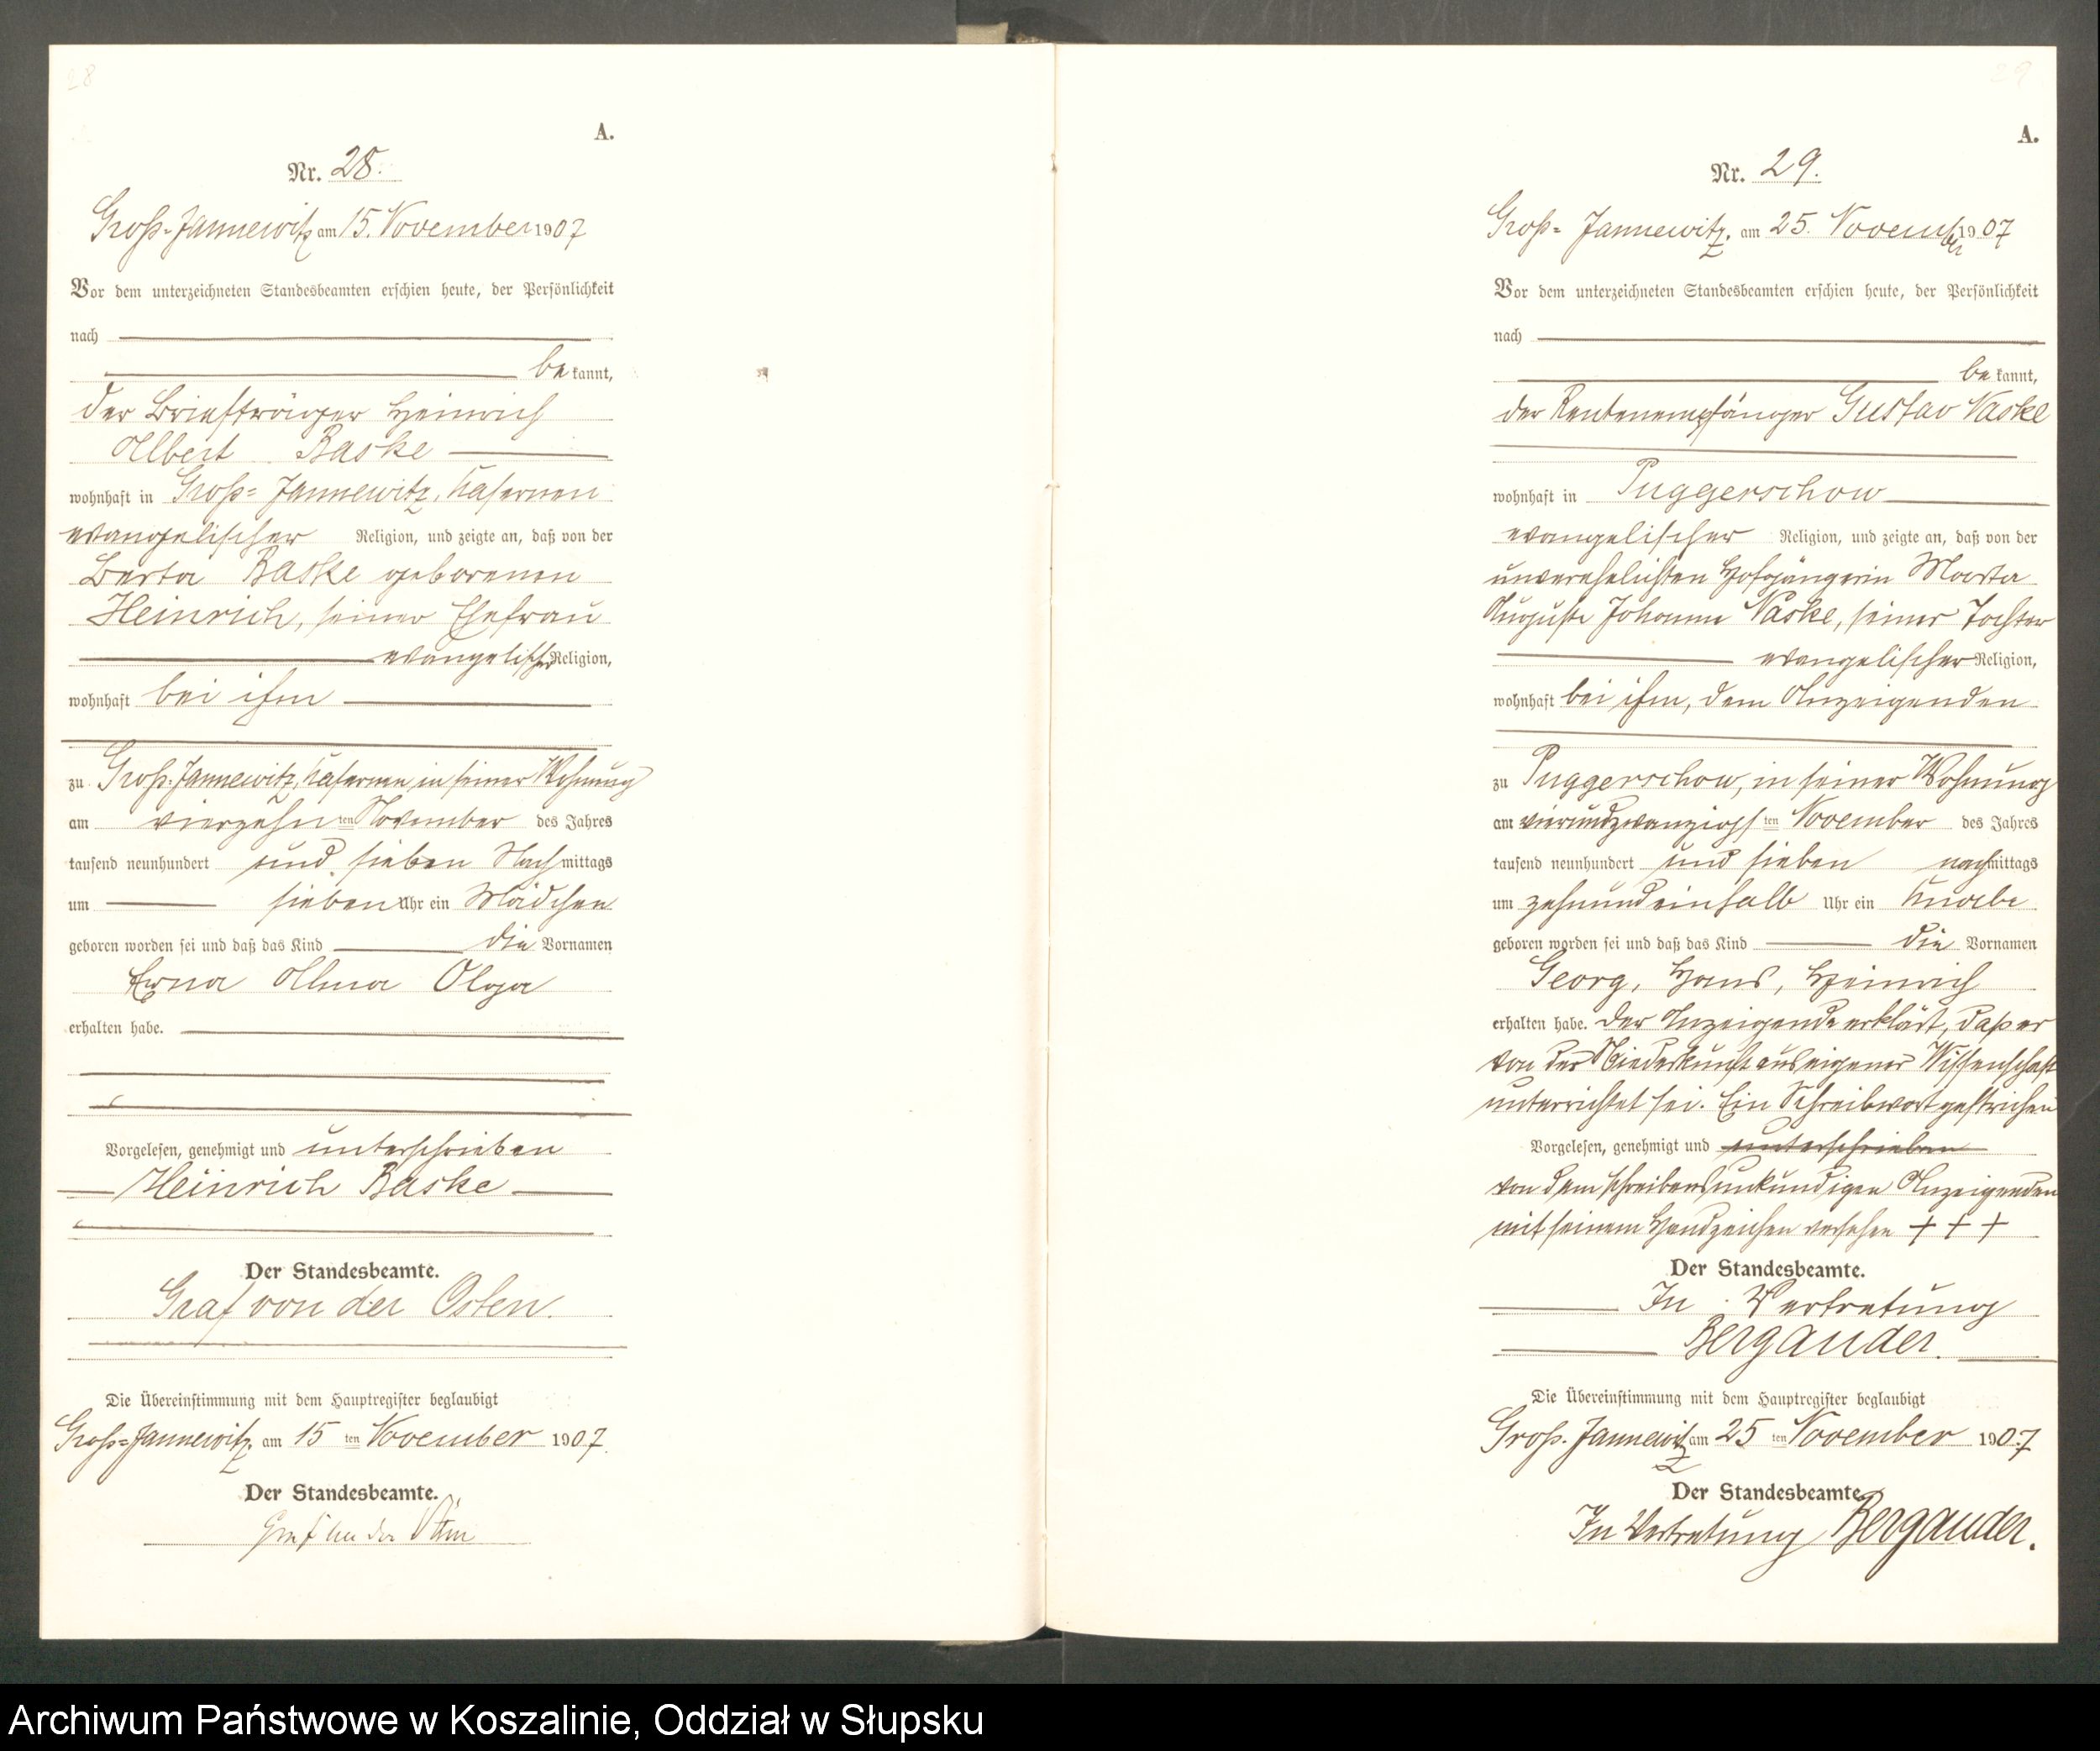 28
A.
Nr. 28.
Groß-Jannewitz am 15. November 1907
Vor dem unterzeichneten Standesbeamten erschien heute, der Persönlichkeit
nach
bekannt,
der Briefträger Heinrich
Albert Baske
wohnhaft in Groß-Jannewitz, Kasernen
evangelischer Religion, und zeigte an, daß von der
Berta Baske geborenen
Heinrich, seiner Ehefrau
evangelischer Religion,
wohnhaft bei ihm
zu Groß-Jannewitz, Kasernen in seiner Wohnung
am vierzehn ten November des Jahres
tausend neunhundert und sieben Nachmittags
um sieben Uhr ein Mädchen
geboren worden sei und daß das Kind die Vornamen
Erna Alma Olga
erhalten habe.
Vorgelesen, genehmigt und unterschrieben
Heinrich Baske
Der Standesbeamte.
Graf von der Osten.
Die Übereinstimmung mit dem Hauptregister beglaubigt
Groß-Jannewitz, am 15 ten November 1907.
Der Standesbeamte.
Graf von der Osten
29
A.
Nr. 29.
Groß-Jannewitz, am 25. November 1907
Vor dem unterzeichneten Standesbeamten erschien heute, der Persönlichkeit
nach
bekannt,
der Rentenempfänger Gustav Vaske
wohnhaft in Puggerschow
evangelischer Religion, und zeigte an, daß von der
unverehelichten Hofgängerin Marta
Auguste Johanne Vaske, seiner Tochter
evangelischer Religion,
wohnhaft bei ihm, dem Anzeigenden
zu Puggerschow, in seiner Wohnung
am vierundzwanzigsten November des Jahres
tausend neunhundert und sieben nachmittags
um zehnundeinhalb Uhr ein Knabe
geboren worden sei und daß das Kind die Vornamen
Georg, Hans, Heinrich
erhalten habe. Der Anzeigende erklärt, daß er
von der Niederkunft aus eigener Wissenschaft
unterrichtet sei. Ein Schreibwort gestrichen
Vorgelesen, genehmigt und unterschrieben
von dem schreibensunkundigen Anzeigenden
mit seinem Handzeichen versehen + + +
Der Standesbeamte.
In Vertretung
Bergander.
Die Übereinstimmung mit dem Hauptregister beglaubigt
Groß-Jannewitz am 25 ten November 1907
Der Standesbeamte.
In Vertretung Bergander.
Archiwum Państwowe w Koszalinie, Oddział w Słupsku